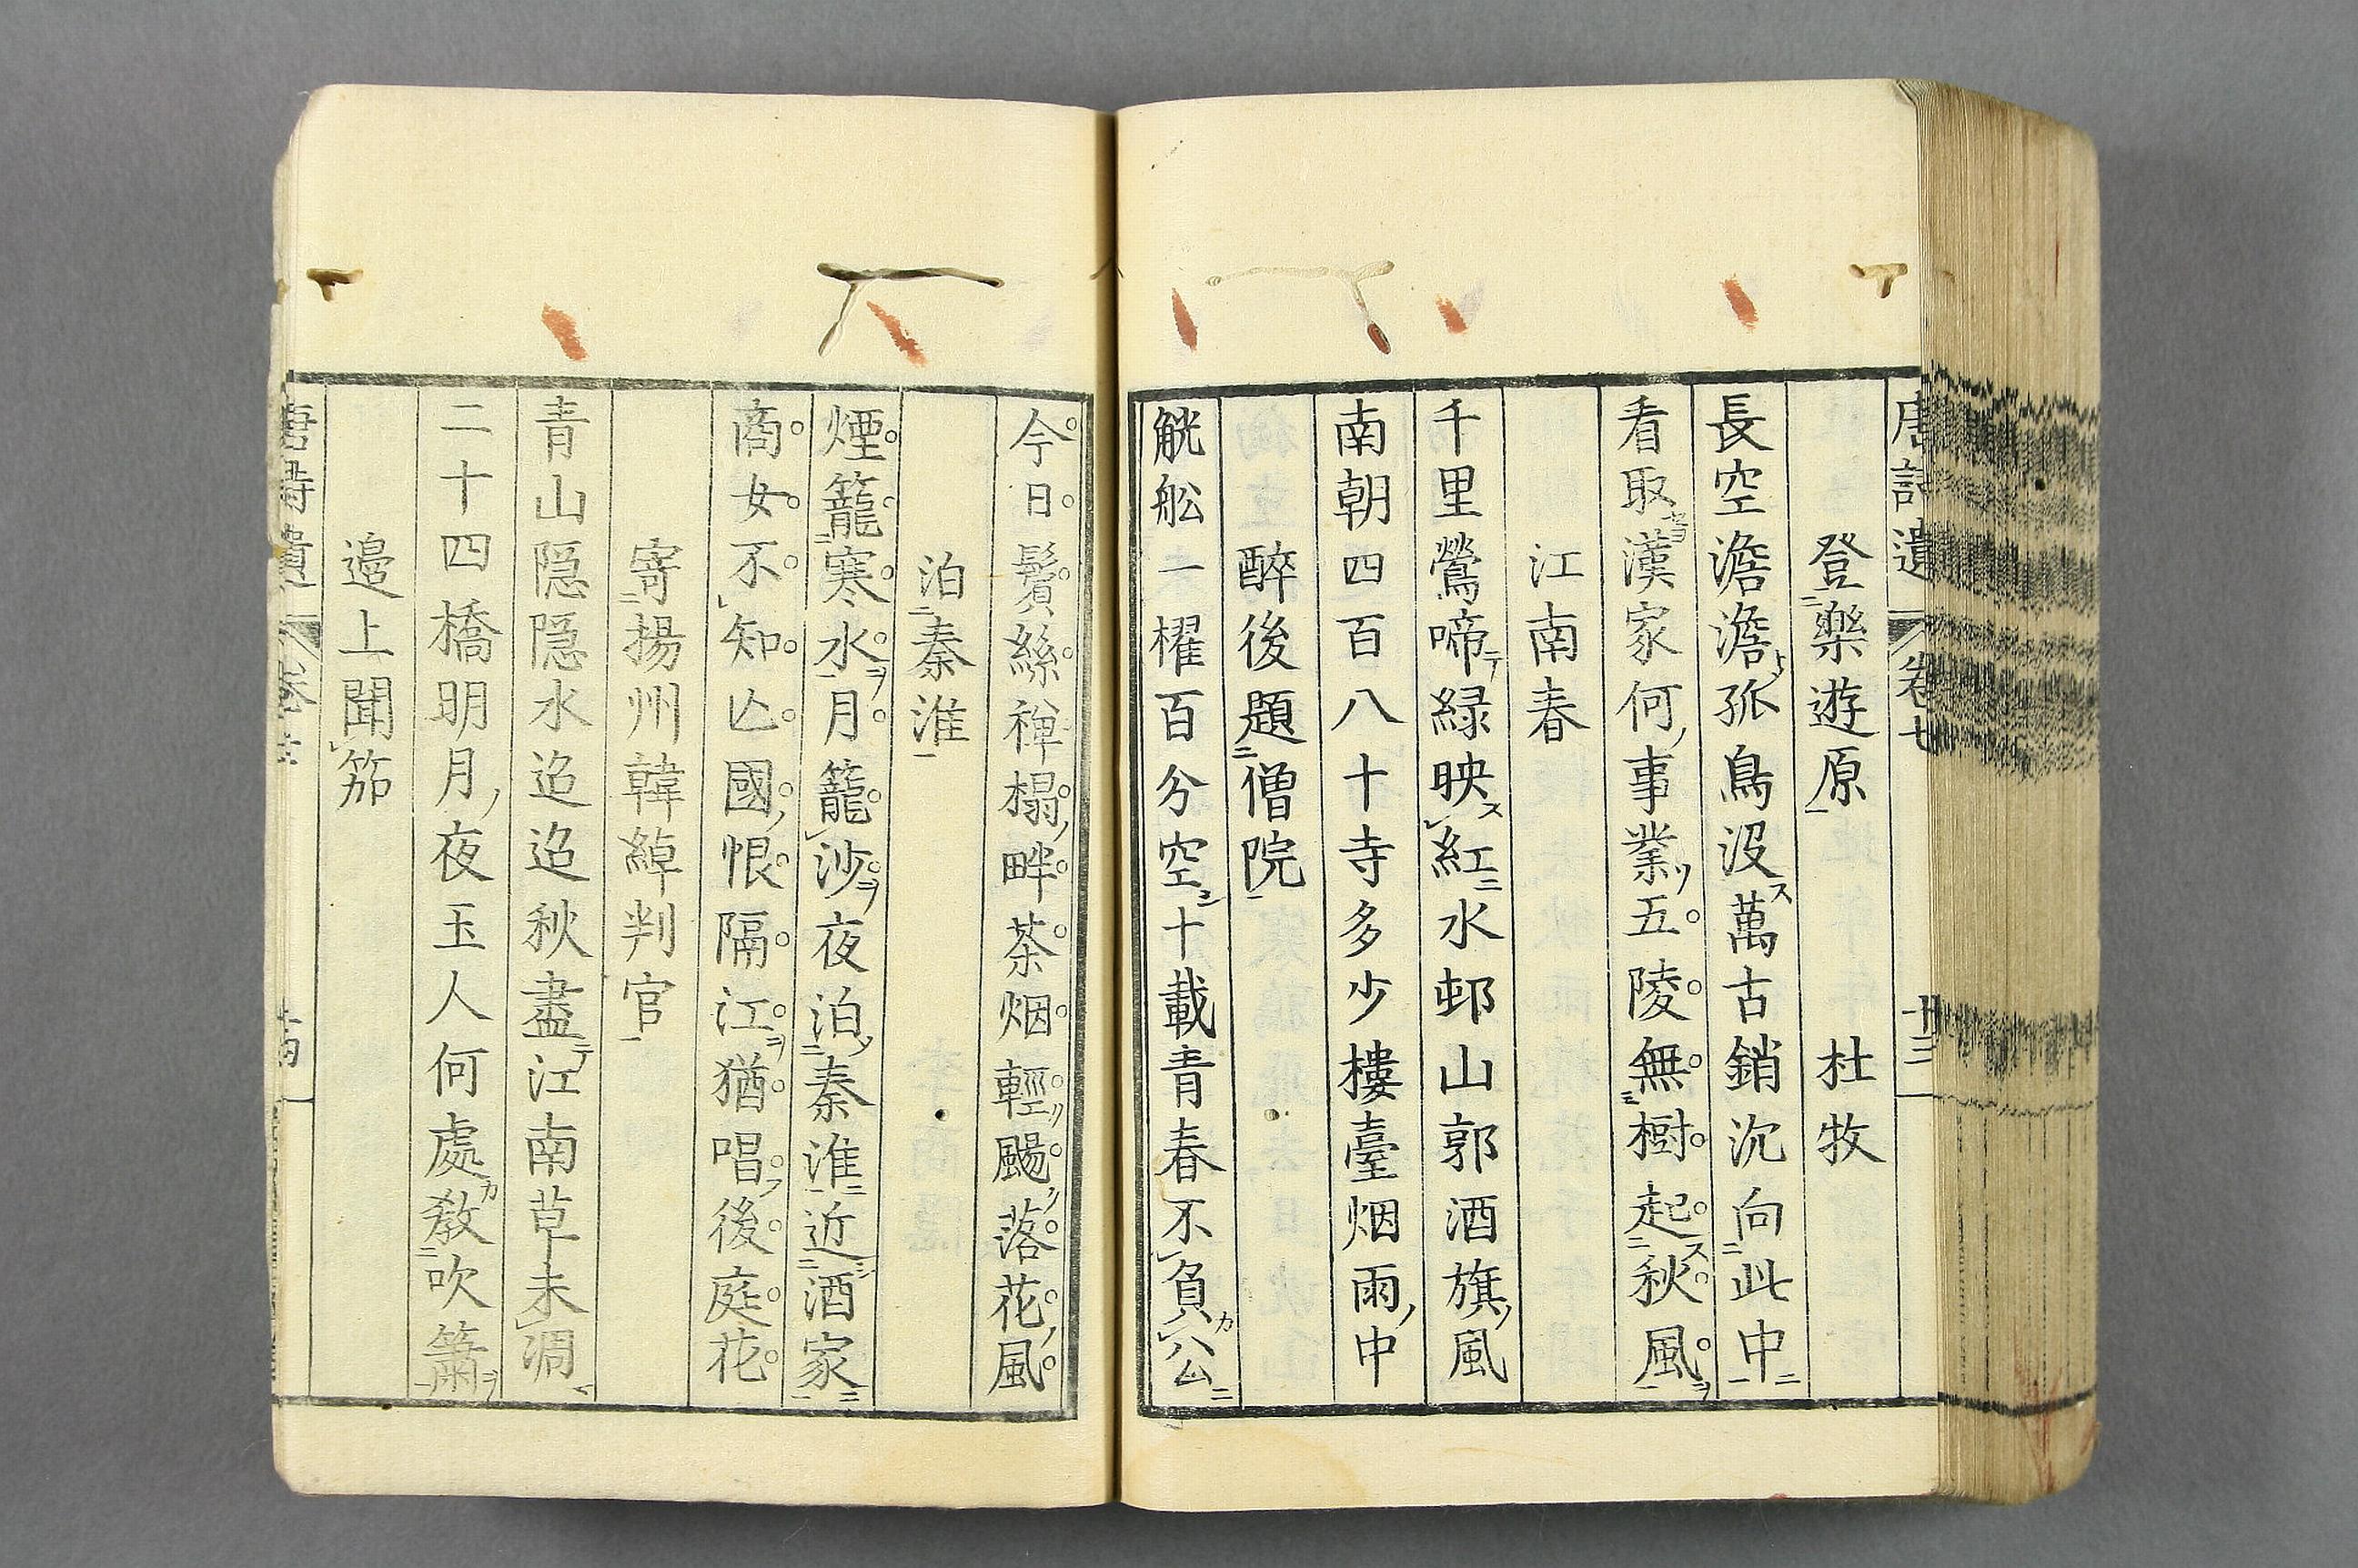 唐詩遺 卷七 十三
登樂遊原 杜牧
長空澹澹孤鳥沒萬古銷沉向此中
看取漢家何事業五陵無樹起秋風
江南春
千里鶯啼緑映紅水邨山郭酒旗風
南朝四百八十寺多少樓臺烟雨中
醉後題僧院
觥舩一櫂百分空十載青春不負公
今日鬢絲禅榻畔茶烟輕颺落花風
泊秦淮
煙籠寒水月籠沙夜泊秦淮近酒家
商女不知亾國恨隔江猶唱後庭花
寄揚州韓綽判官
青山隠隠水迢迢秋盡江南草未凋
二十四橋明月夜玉人何處教吹簫
邉上聞笳
唐詩遺